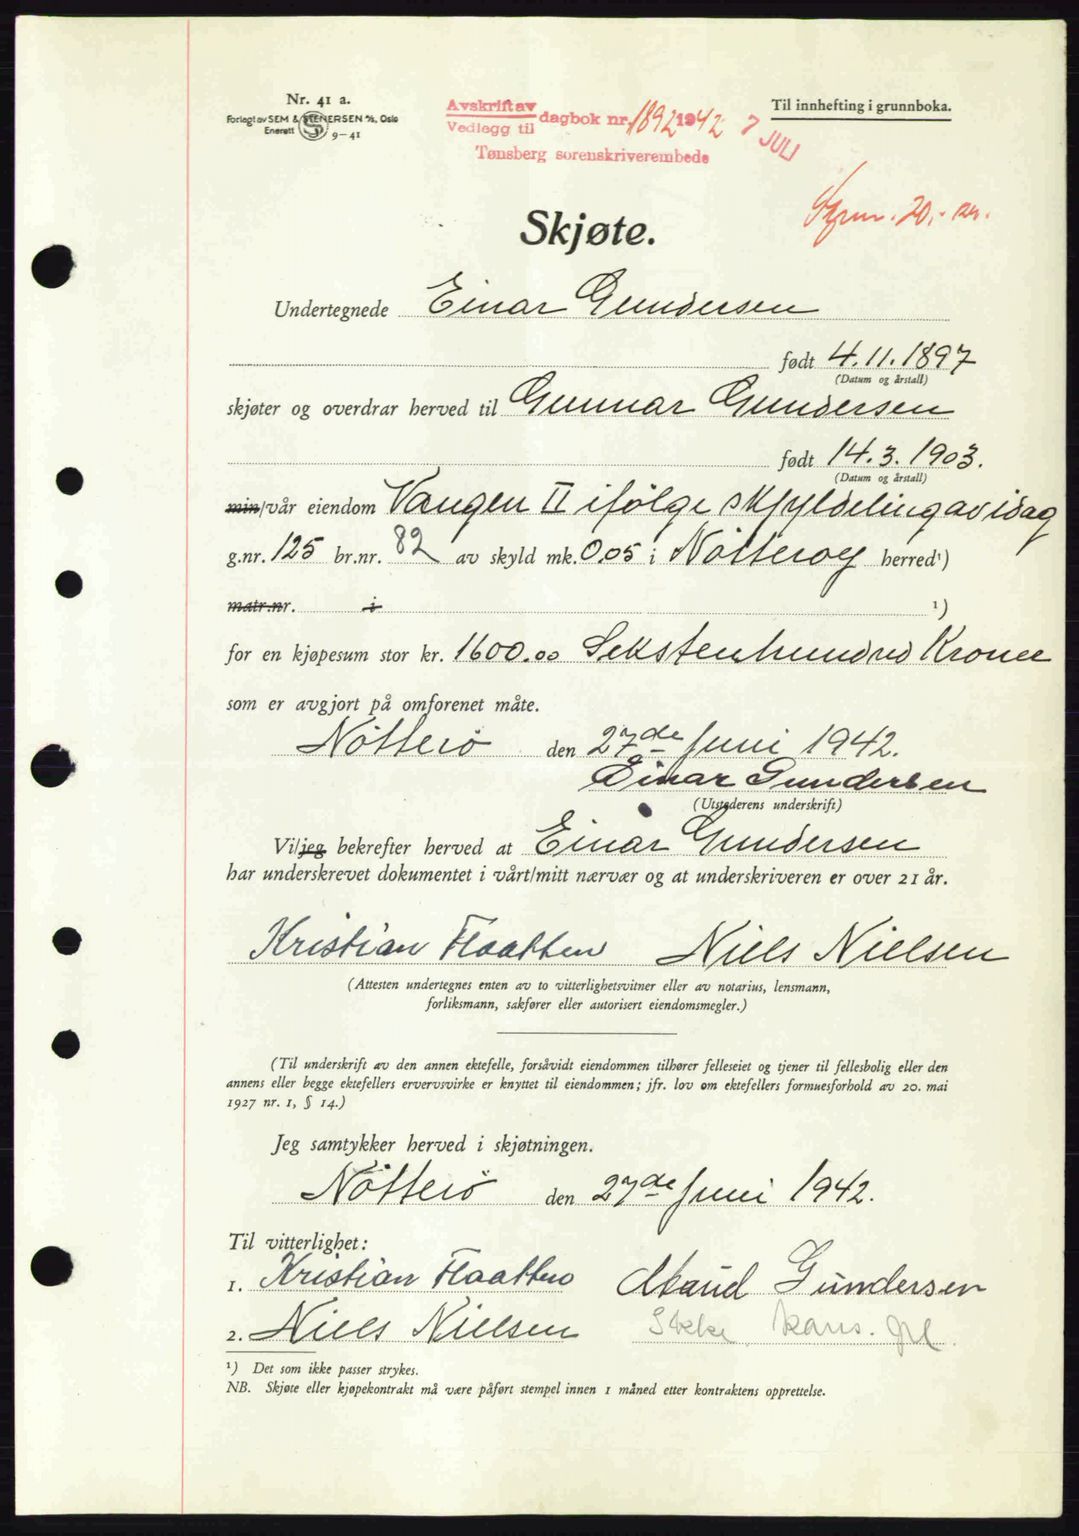 Nr. 41 a.
Forlagt av SEM & STENERSEN A/S, Oslo
Enerett 9-41
Avskrift av
Vedlegg til dagbok nr. 1892 1942 7 JULI
Tønsberg sorenskriverembede
Til innhefting i grunnboka.
20.- kr.
Skjøte.
Undertegnede Einar Gundersen
født 4.11.1897
(Datum og årstall)
skjøter og overdrar herved til Gunnar Gundersen
født 14.3.1903.
(Datum og årstall)
min/vår eiendom Vangen II ifölge skyldeling av idag
g.nr. 125 br.nr. 82 av skyld mk. 0.05 i Nötteroy herred¹)
matr.nr. i ¹)
for en kjøpesum stor kr. 1600.00 Sekstenhundred Kroner
som er avgjort på omforenet måte.
Nötterö den 27de Juni 1942.
Einar Gundersen
(Utstederens underskrift)
Vi/jeg bekrefter herved at Einar Gundersen
har underskrevet dokumentet i vårt/mitt nærvær og at underskriveren er over 21 år.
Kristian Flaatten Niels Nielsen
(Attesten undertegnes enten av to vitterlighetsvitner eller av notarius, lensmann,
forliksmann, sakfører eller autorisert eiendomsmegler.)
(Til underskrift av den annen ektefelle, forsåvidt eiendommen tilhører felleseiet og tjener til fellesbolig eller den
annens eller begge ektefellers ervervsvirke er knyttet til eiendommen; jfr. lov om ektefellers formuesforhold av 20. mai
1927 nr. 1, § 14.)
Jeg samtykker herved i skjøtningen.
Nötterö den 27de Juni 1942.
Til vitterlighet:
1. Kristian Flaatten Maud Gundersen
2. Niels Nielsen Ikke kans.
¹) Det som ikke passer strykes.
NB. Skjøte eller kjøpekontrakt må være påført stempel innen 1 måned etter kontraktens opprettelse.